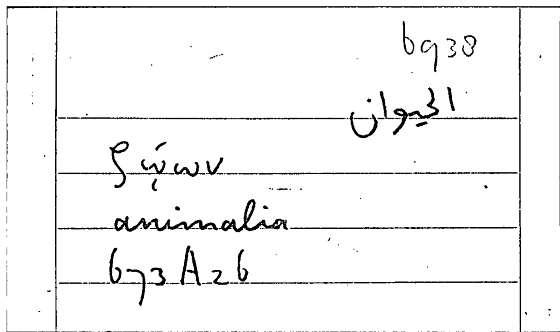 6938
الحيوان
ζῴων
animalia
673 A 26